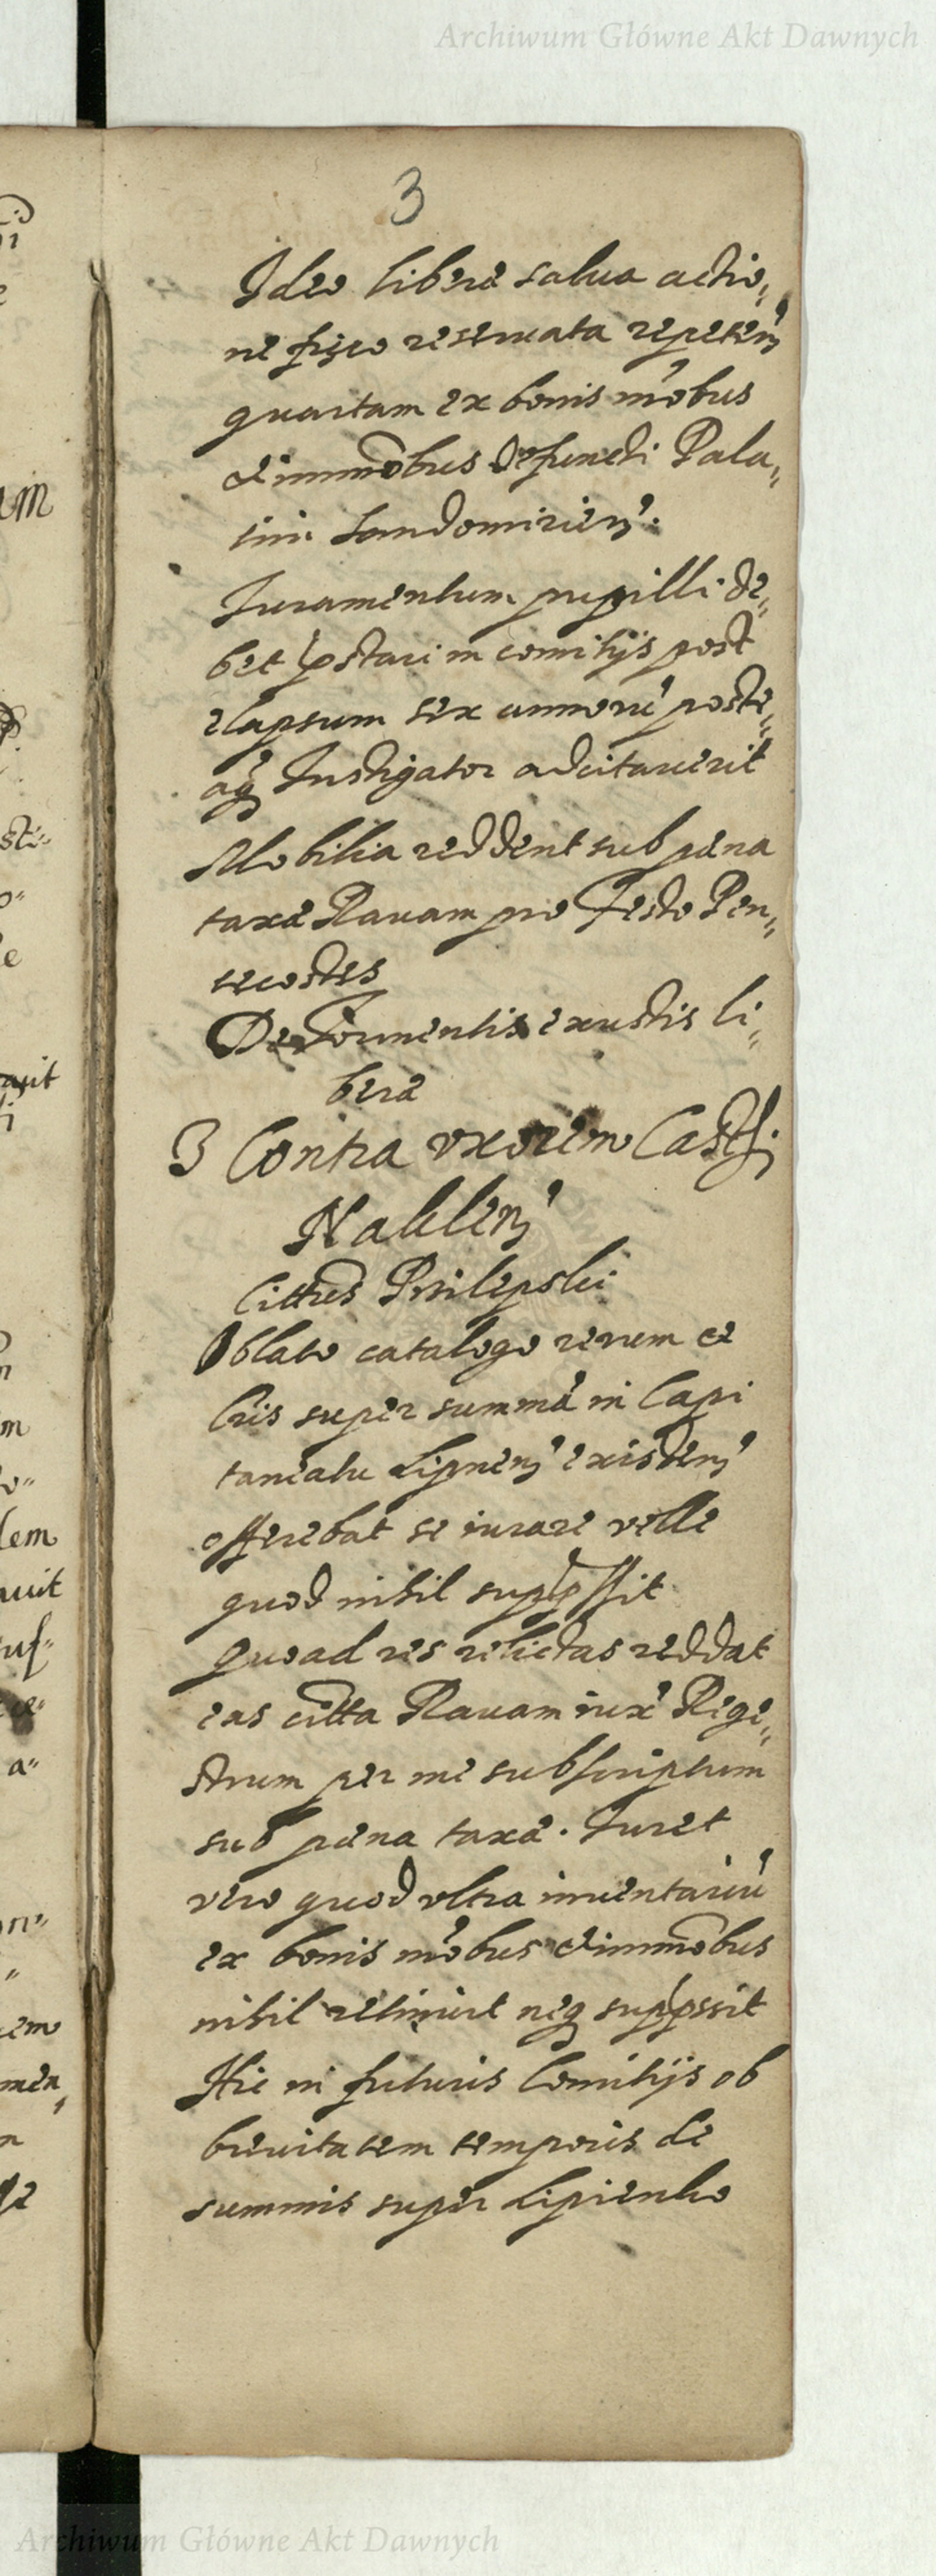 Archiwum Główne Akt Dawnych
3
Ideo liberè salua actio„
ne fisco reseruata repetẽn
quartam ex bonis mõbus
& immõbus defuncti Pala„
tini Sandomirien̄.
Iuramentum pupilli de„
bet pstari in comitijs post
elapsum sex annorũ poste„
aq̃ Instigator adcitauerit
Mobilia reddent sub pæna
taxæ Rauam pro Festo Pen„
tecostes
De Tormentis exustis li„
beræ
3 Contra vxorem
Naklen̄
Cittũs Prilepski
Oblato catalogo rerum et
lris super summã in Capi
taneatu Lipnen̄ existen̄
offerebat se iurare velle
quod nihil suppssit
Quoad res relictas reddat
eas citta Rauam iux̃ Regi„
strum per me subscriptum
sub pæna taxæ. Iuret
vero quod vltra inuentariũ
ex bonis mõbus & immõbus
nihil retinuit neq suppssit
Hic in futuris Comitijs ob
breuitatem temporis de
summis super Lipienko
Archiwum Główne Akt Dawnych